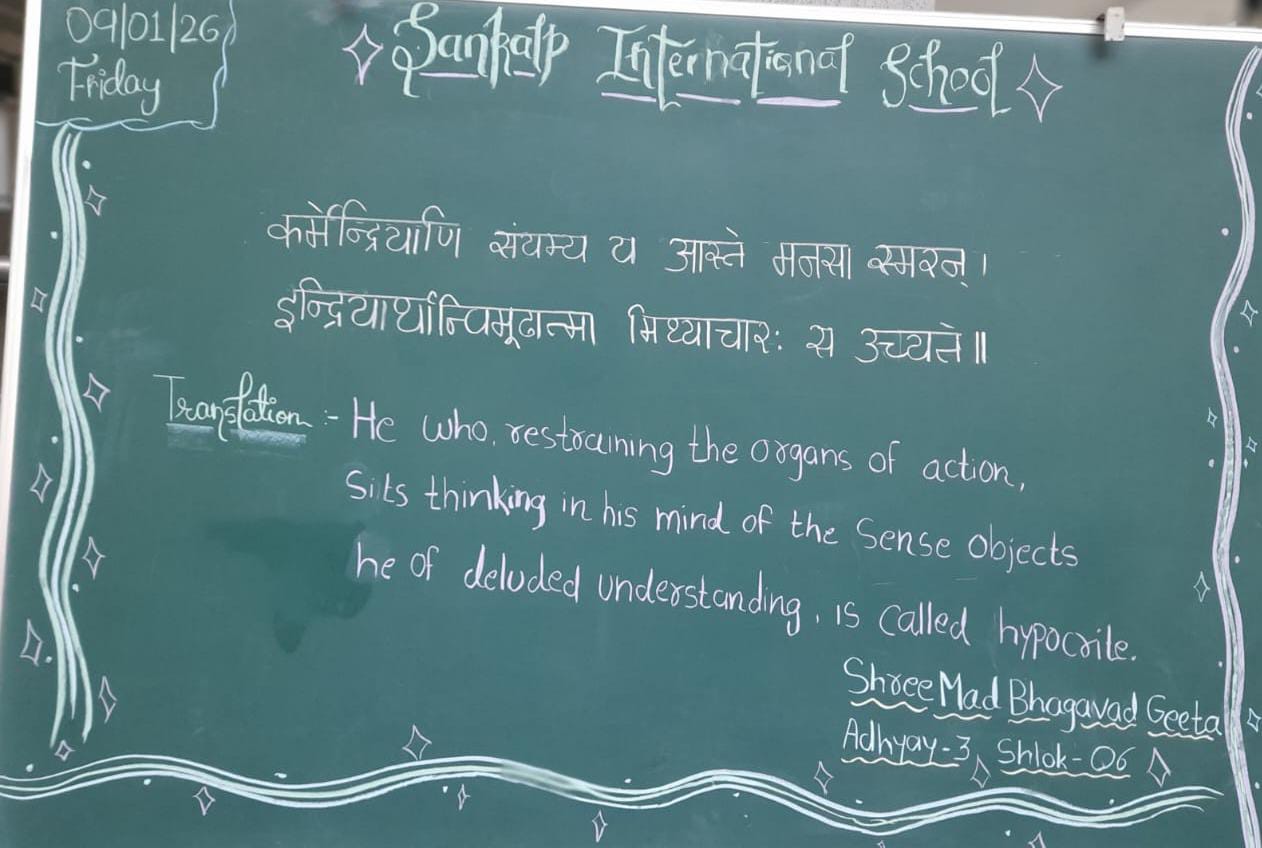 09/01/26
Friday
Sankalp International School
कर्मेन्द्रियाणि संयम्य य आस्ते मनसा स्मरन्।
इन्द्रियार्थान्विमूढान्मा मिथ्याचारः स उच्यते॥
Translation :- He who, restraining the organs of action,
Sits thinking in his mind of the Sense Objects
he of deluded understanding, is called hypocrite.
Shree Mad Bhagavad Geeta
Adhyay-3, Shlok-06